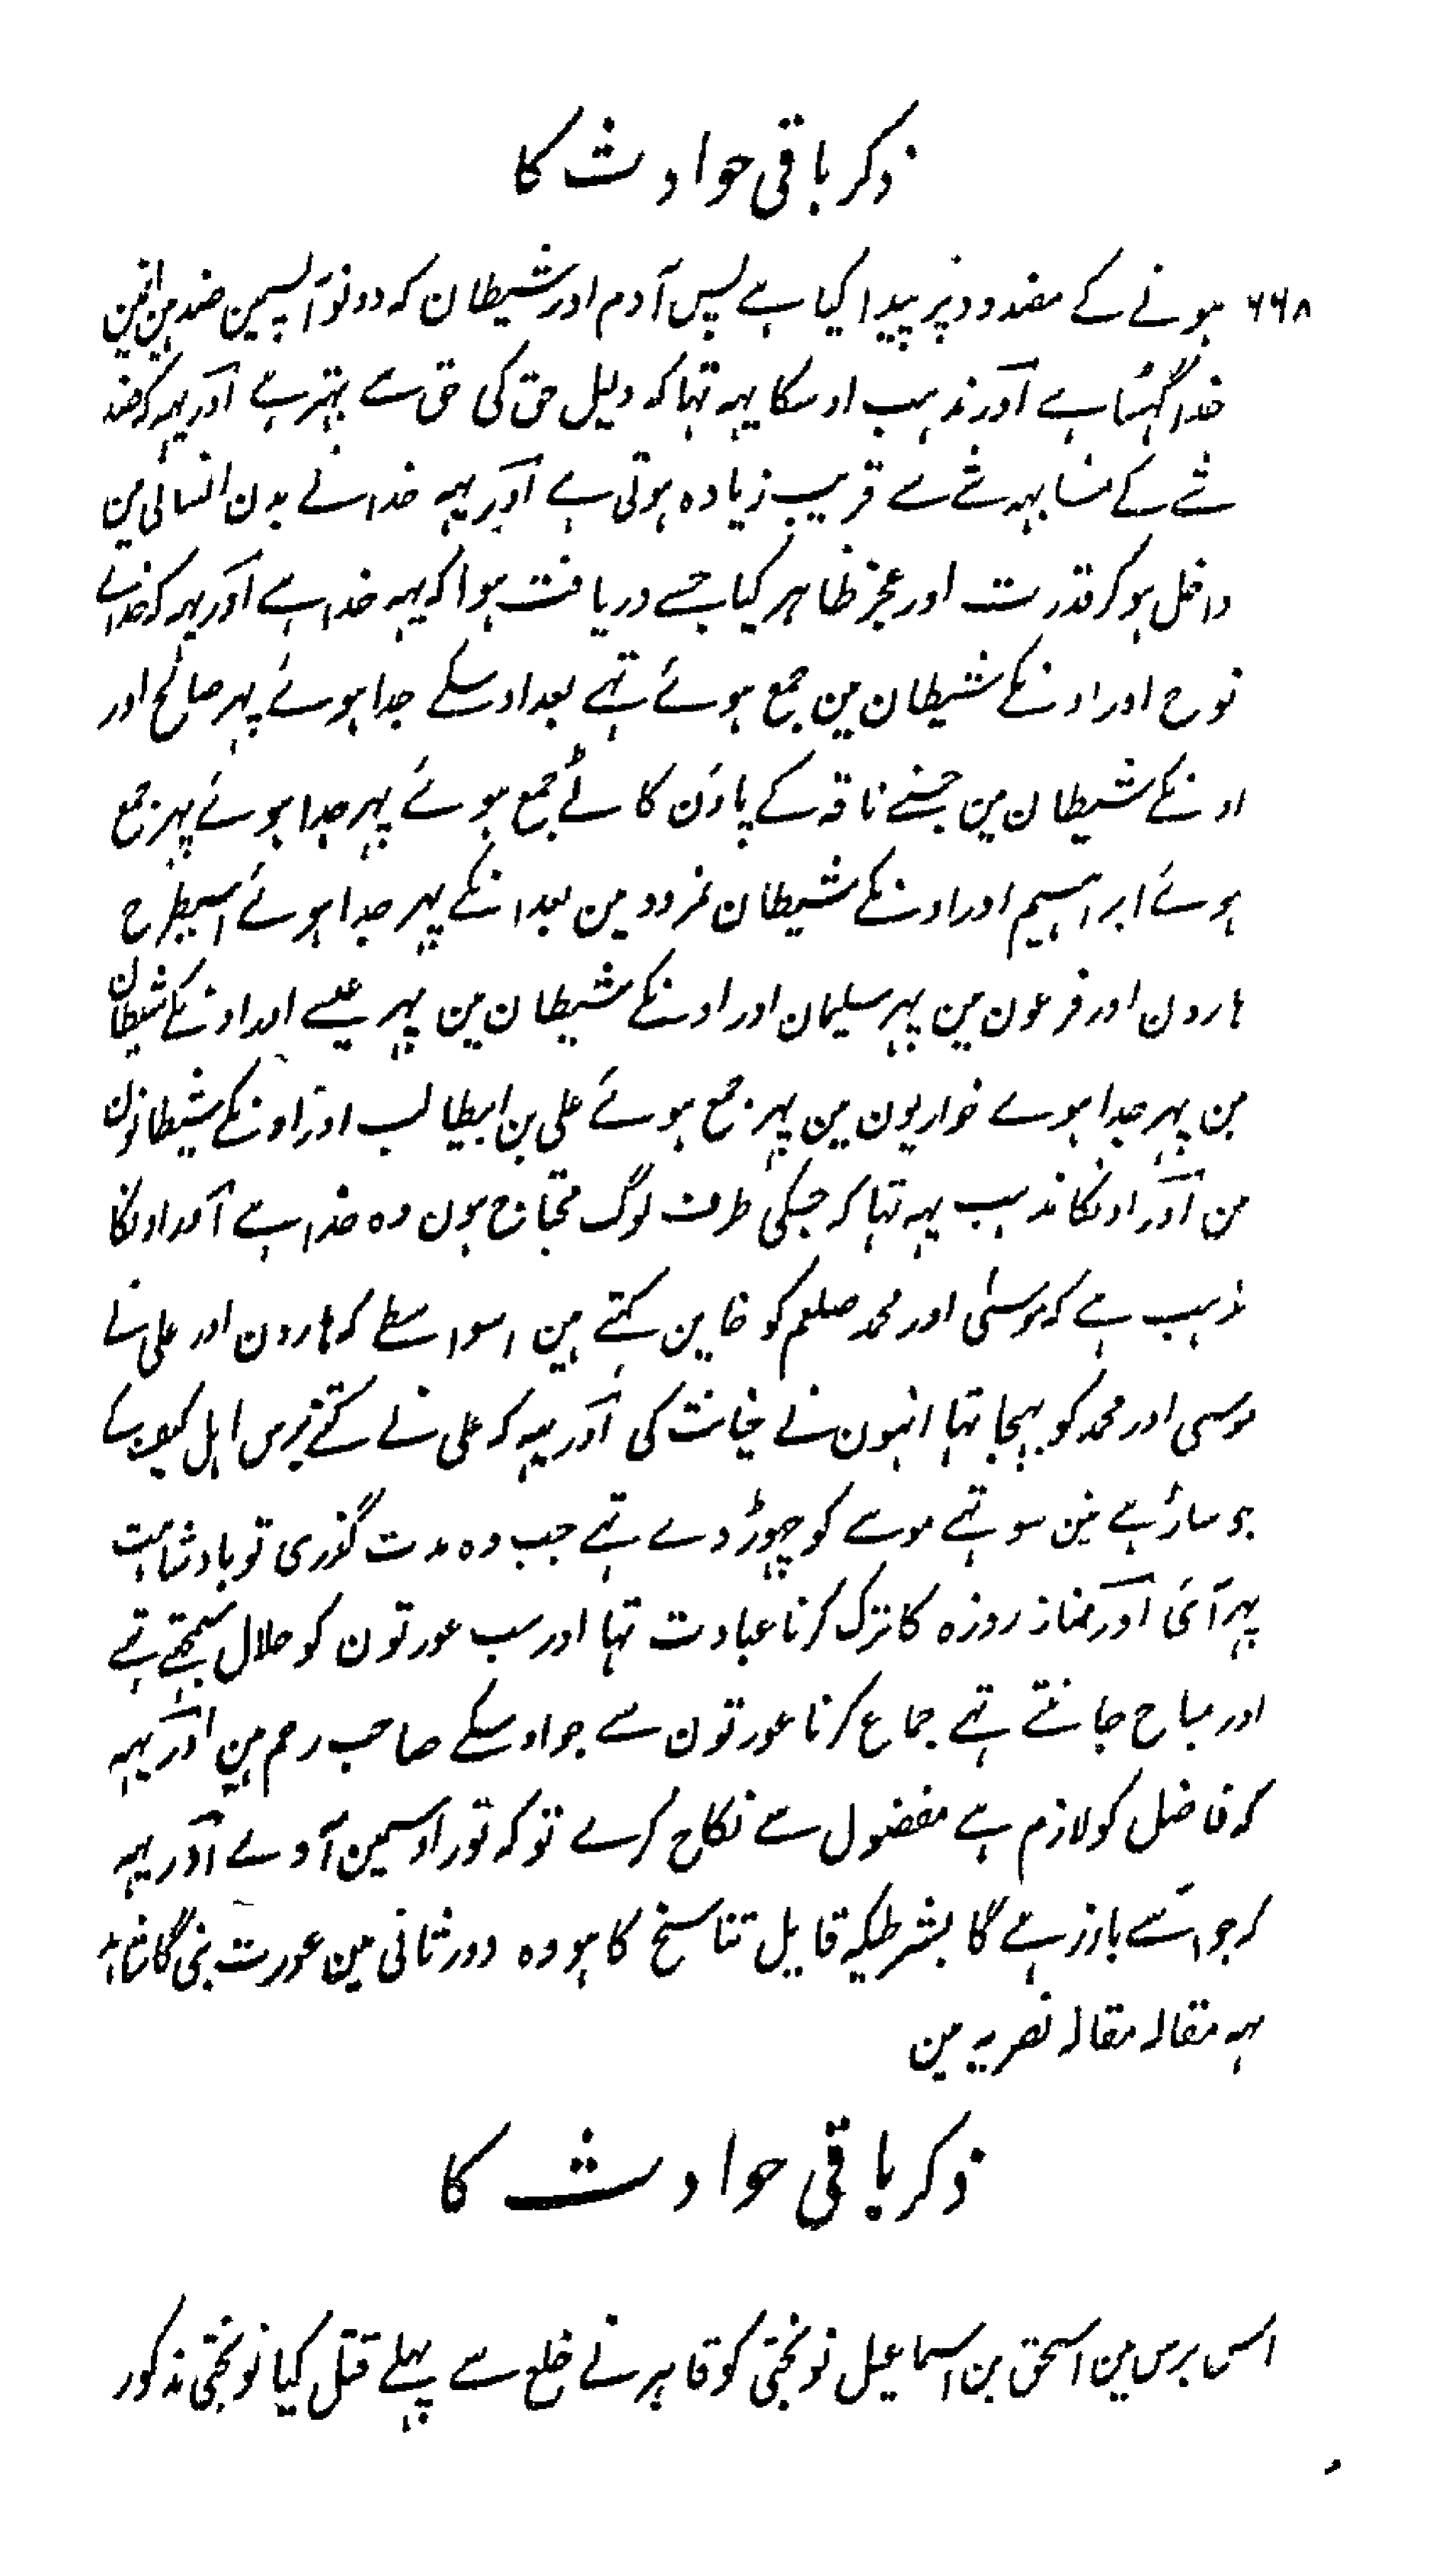 ذکر باقی حوادث کا
۶۶۸ ہونے کے مضدود پر پیدا کیا ہے پس آدم اور شیطان کہ دونو آپسمین ضد ہین انمین
خدا گہستا ہے اور مذہب اوسکا یہہ تہا کہ دلیل حق کی حق سے بہتر ہے اور یہہ کہ ضد
شے کے مشابہہ شے سے قریب زیادہ ہوتی ہے اور یہہ خدا نے بدن انسانی مین
داخل ہو کر قدرت اور عجز ظاہر کیا جسے دریافت ہوا کہ یہہ خدا ہے اور یہہ کہ خدا نے
نوح اور اونکے شیطان مین جمع ہوئے تہے بعد اوسکے جدا ہوئے پہر صالح اور
اونکے شیطان مین جسنے ناقہ کے پاؤن کاٹے جمع ہوئے پہر جدا ہوئے پہر جمع
ہوئے ابراہیم اور اونکے شیطان نمرود مین بعد انکے پہر جدا ہوئے اسیطرح
ہارون اور فرعون مین پہر سلیمان اور اونکے شیطان مین پہر عیسے اور اونکے شیطان
مین پہر جدا ہوے حواریون مین پہر جمع ہوئے علی بن ابیطالب اور اونکے شیطانون
مین اور اونکا مذہب یہہ تہا کہ جسکی طرف لوگ محتاج ہون وہ خدا ہے اور اونکا
مذہب ہے کہ موسٰی اور محمد صلعم کو خاین کہتے ہین اسواسطے کہ ہارون اور علی نے
موسی اور محمد کو بہیجا تہا انہون نے خیانت کی اور یہہ کہ علی نے کتنے برس اہل کہف کے
جو ساڑہے تین سو تہے موسے کو چہوڑ دے تہے جب وہ مدت گذری تو بادشاہت
پہر آئی اور نماز روزہ کا ترک کرنا عبادت تہا اور سب عورتون کو حلال سمجہتے تہے
اور مباح جانتے تہے جماع کرنا عورتون سے جو اوسکے صاحب رحم ہین اور یہہ
کہ فاضل کو لازم ہے مفضول سے نکاح کرے تو کہ نور اوسمین آوے اور یہہ
کہ جو اسے باز رہے گا بشرطیکہ قایل تناسخ کا ہو وہ دور ثانی مین عورت بنی گا
یہہ مقالہ مقالہ نصریہ مین
ذکر باقی حوادث کا
اس برس مین اسحق بن اسماعیل نوبختی کو قاہر نے خلع سے پہلے قتل کیا نوبختی مذکور